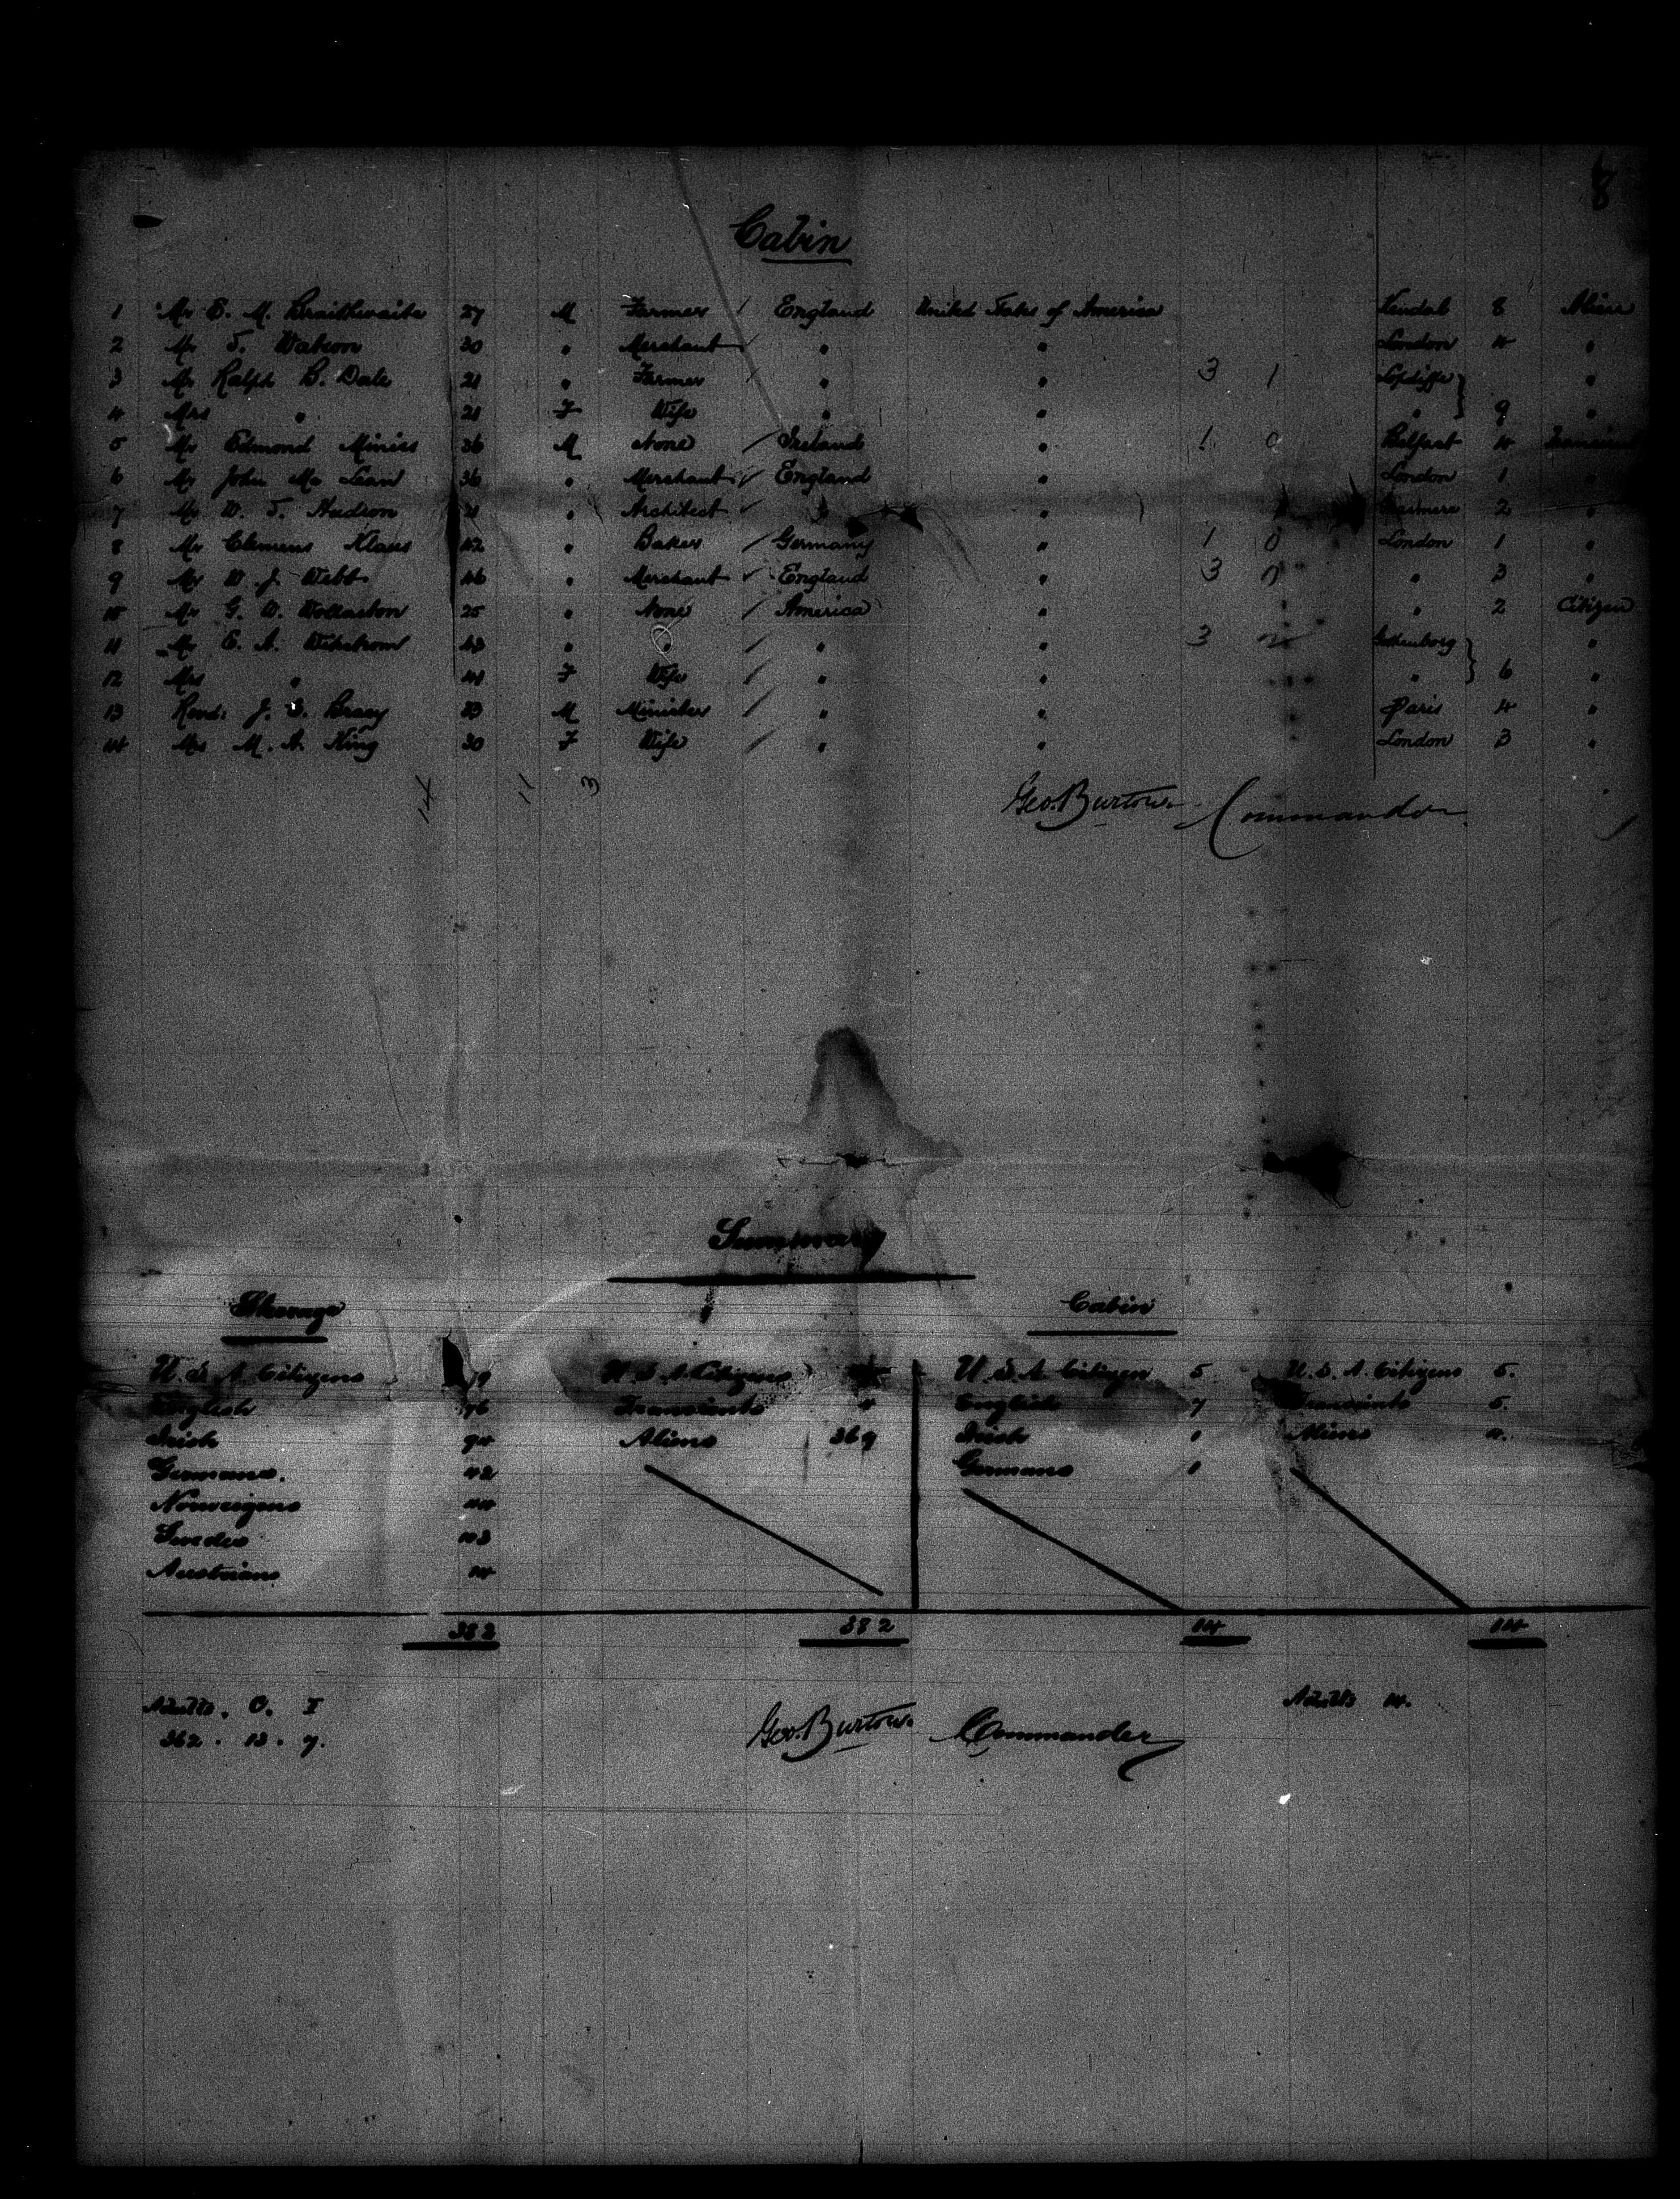 8
Cabin
1 Mr E. M. Braithwaite 27 M Farmer / England United States of America Kendal 8 Alien
2 Mr T. Watson 30 " Merchant / " " London 4 "
3 Mr Ralph B. Dale 21 " Farmer / " " 3 1 "
4 Mrs " 21 F Wife " " " 9 "
5 Mr Edmond 36 M None / Ireland " 1 0 Belfast 4
6 Mr John Mc Lean 36 " Merchant / England " London 1 "
7 Mr W. T. Hudson 21 " Architect " " 2 "
8 Mr Clemens Klaus 42 " Baker / Germany " 1 0 London 1 "
9 Mr W. J. Webb 46 " Merchant England " 3 0 " 3 "
10 Mr G. W. Wollaston 25 " None / America " " 2 Citizen
11 Mr E. A. Wikstrom 43 " " / " " 3 2 Gothenborg "
12 Mrs " 41 F Wife / " " " 6 "
13 Revd. J. S. Bracy 33 M Minister / " " Paris 4 "
14 Mrs M. A. King 30 F Wife / " " London 3 "
14 11 3
Geo. Burton. Commander
Summary
Steerage Cabin
U. S. A. Citizens 19 U. S. A. Citizens U. S. A. Citizen 5 U. S. A. Citizens 5.
English 76 Transients 4 English 7 Transients 5.
Irish 94 Aliens 369 Irish 1 Aliens 4.
Germans. 42 Germans 1
Norweigens 44
Swedes 103
Austrians
382 382 14 14
Adults. C. I Adults 14.
362 . 13 . 7.
Geo. Burton. Commander